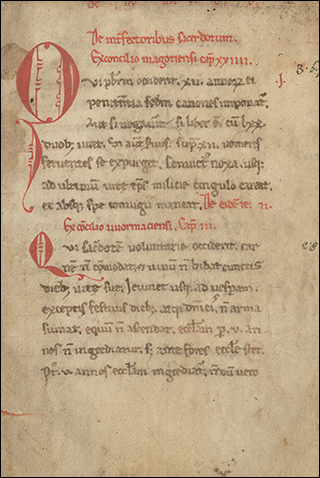 De interfectoribus sacerdotum.
Ex concilio magotiensi cap xxiiii.
Qui pbrm occiderit .xii. annorum ei
penitentia secdm canones imponatr.
Aut si negauit si liber e cu lxx
duob; iuret. Si aut suus sup xii. uomeres
feruentes se expurget. Conuict noxa. usq;
ad ultimum uite tps milicie cingulo careat.
et absq; spe coniugii maneat. De eode re ii
Ex concilio uuormaciensi. Cap iii.
Qui sacdotem uoluntarie occiderit. car
ne n comedat. et uinu n bibat cunctis
dieb; uite sue. Ieiunet usq; ad uesperam.
exceptis festiuis dieb; atq; dnicis n arma
sumat. equu n ascendat. eccliam p. v. an
nos n ingrediatur. s; ante fores ecclie stet.
Pt. v. annos eccliam ingrediat. n du uero